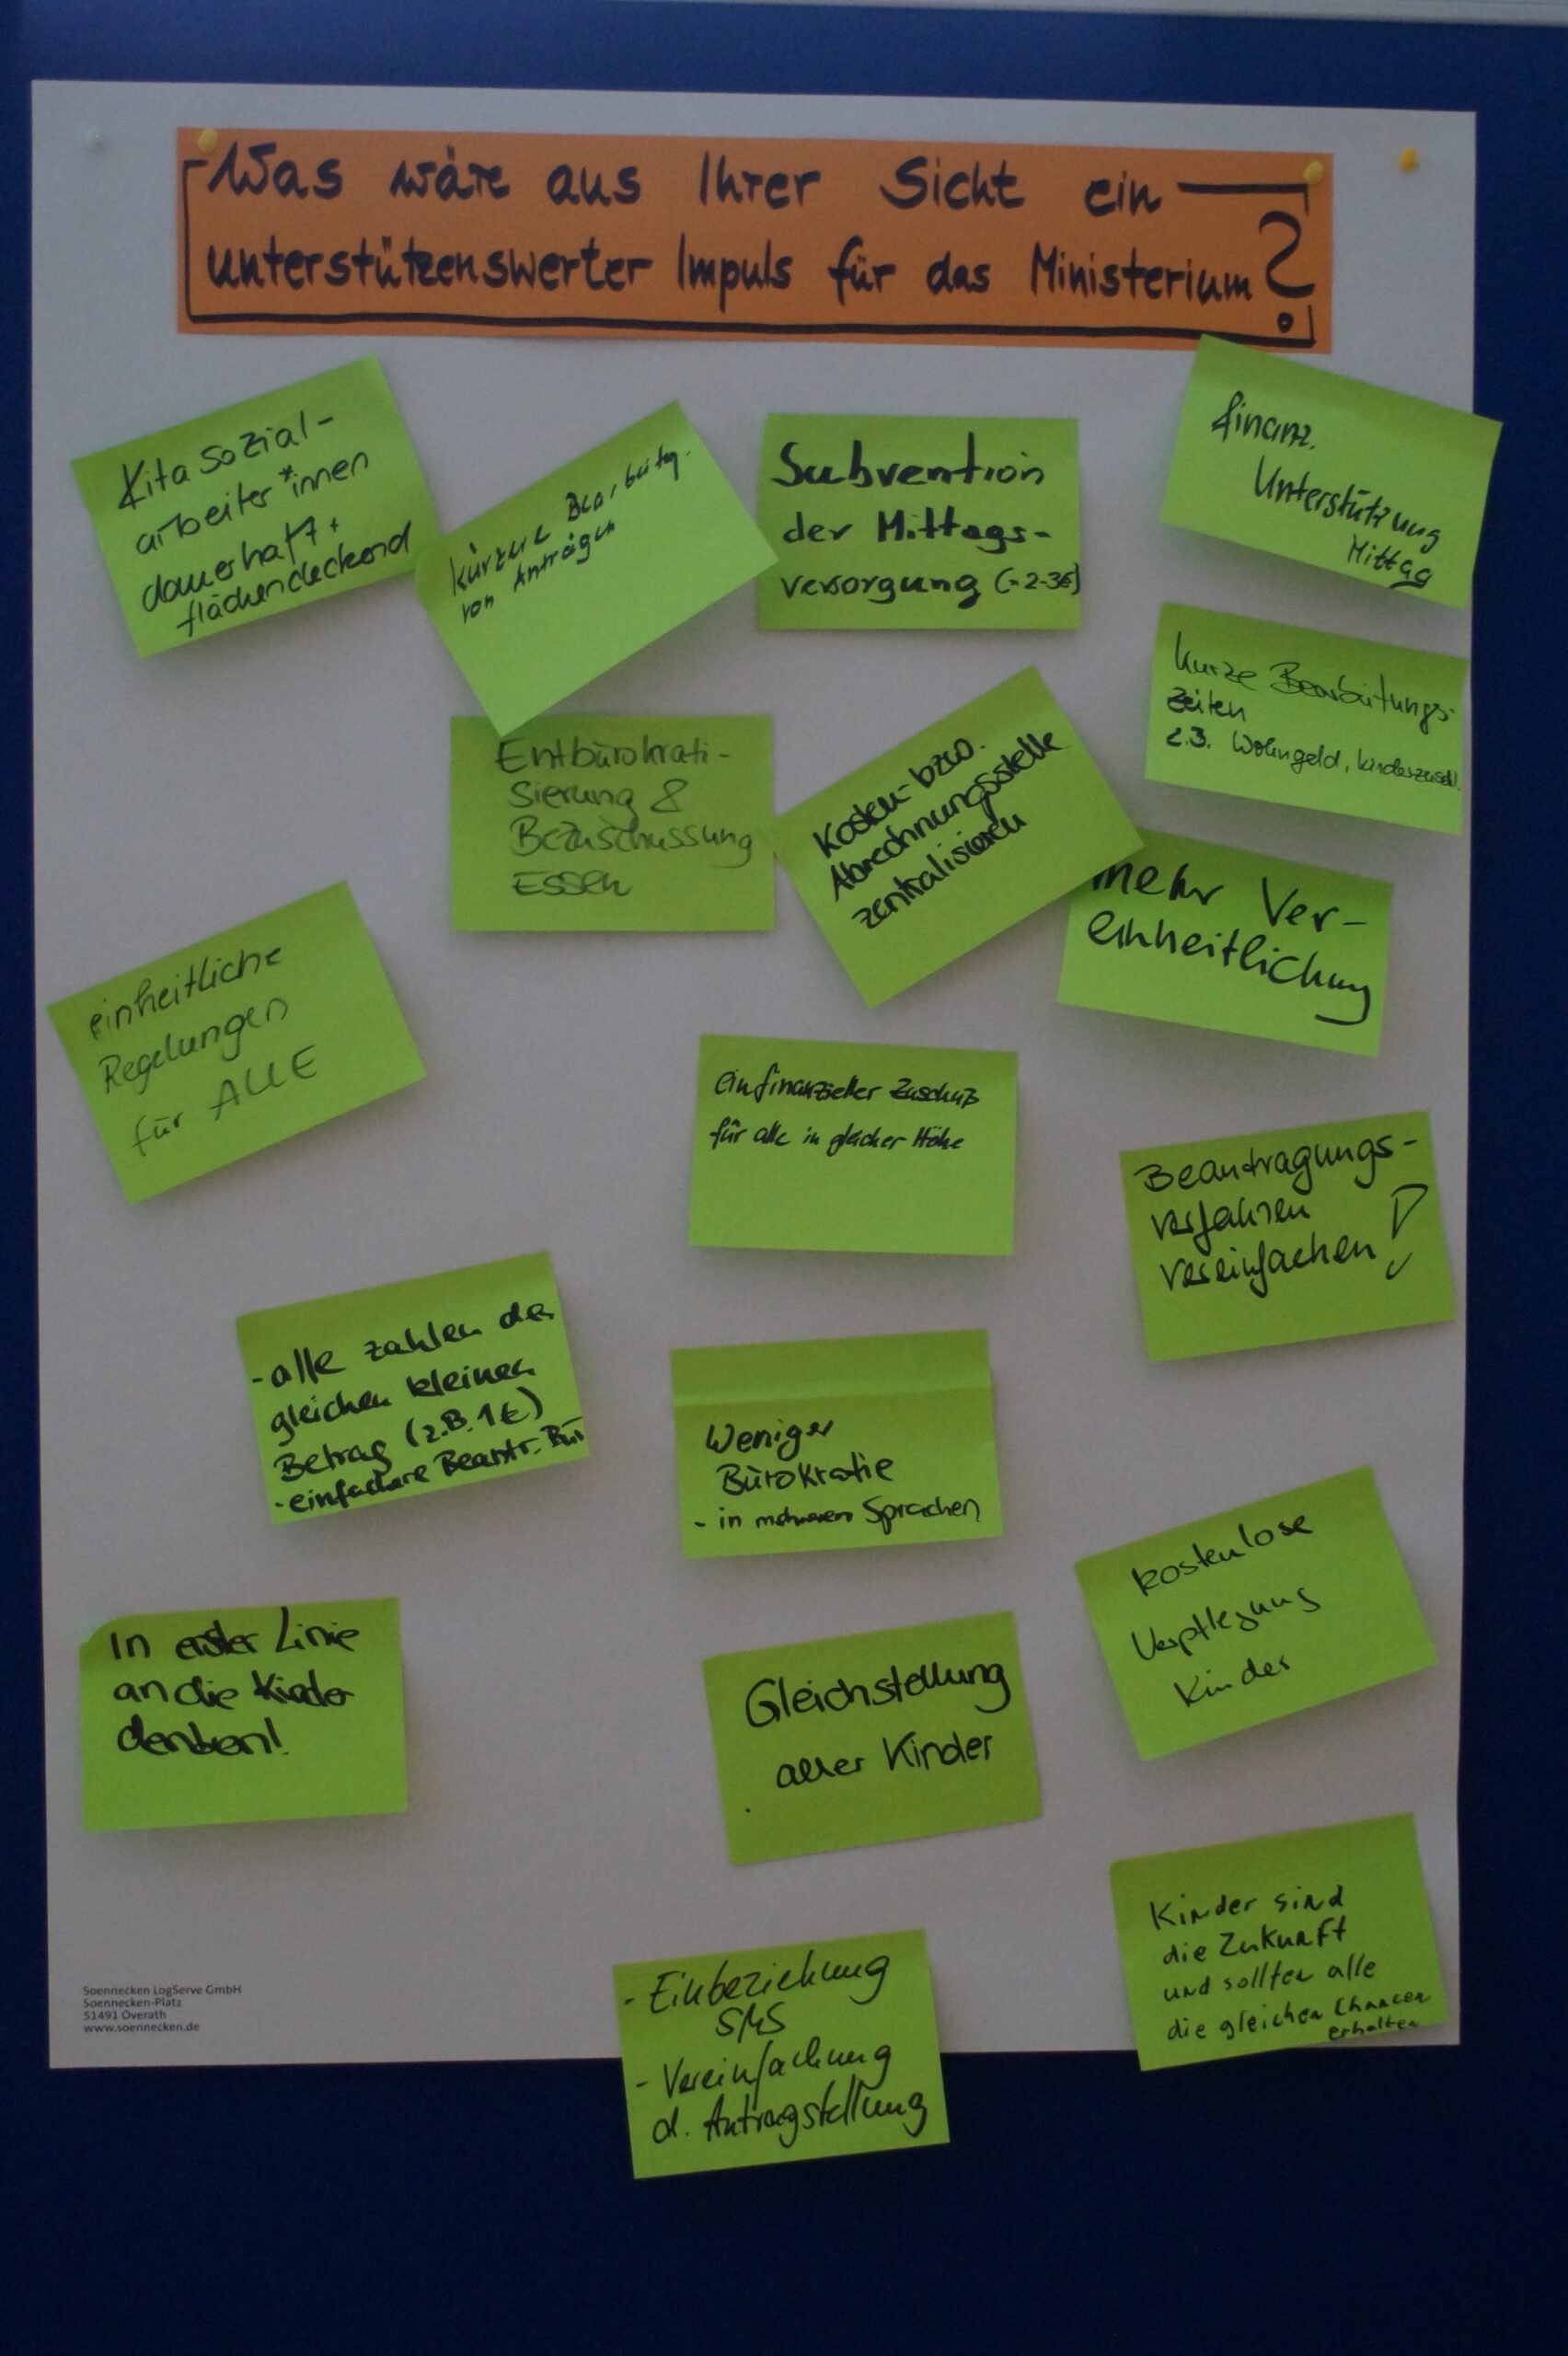 Was wäre aus Ihrer Sicht ein
unterstützenswerter Impuls für das Ministerium?
Kita Sozial-
arbeiter*innen
dauerhaft +
flächendeckend
kürzere Bearbeitg.
von Anträgen
Subvention
der Mittags-
versorgung (-2-3€)
finanz.
Unterstützung
Mittag
kurze Bearbeitungs-
zeiten
z.B. Wohngeld, Kinderzuschl.
Entbürokrati-
sierung &
Bezuschussung
Essen
Kosten- bzw.
Abrechnungsstelle
zentralisieren
mehr Ver-
einheitlichung
einheitliche
Regelungen
für ALLE
ein finanzieller Zuschuß
für alle in gleicher Höhe
Beantragungs-
verfahren
vereinfachen!
- alle zahlen den
gleichen kleinen
Betrag (z.B. 1€)
- einfachere Beantr.
Weniger
Bürokratie
- in mehreren Sprachen
kostenlose
Verpflegung
Kinder
In erster Linie
an die Kinder
denken!
Gleichstellung
aller Kinder
Kinder sind
die Zukunft
und sollten alle
die gleichen Chancen
erhalten
- Einbeziehung
SMS
- Vereinfachung
d. Antragstellung
Soennecken LogServe GmbH
Soennecken-Platz
51491 Overath
www.soennecken.de